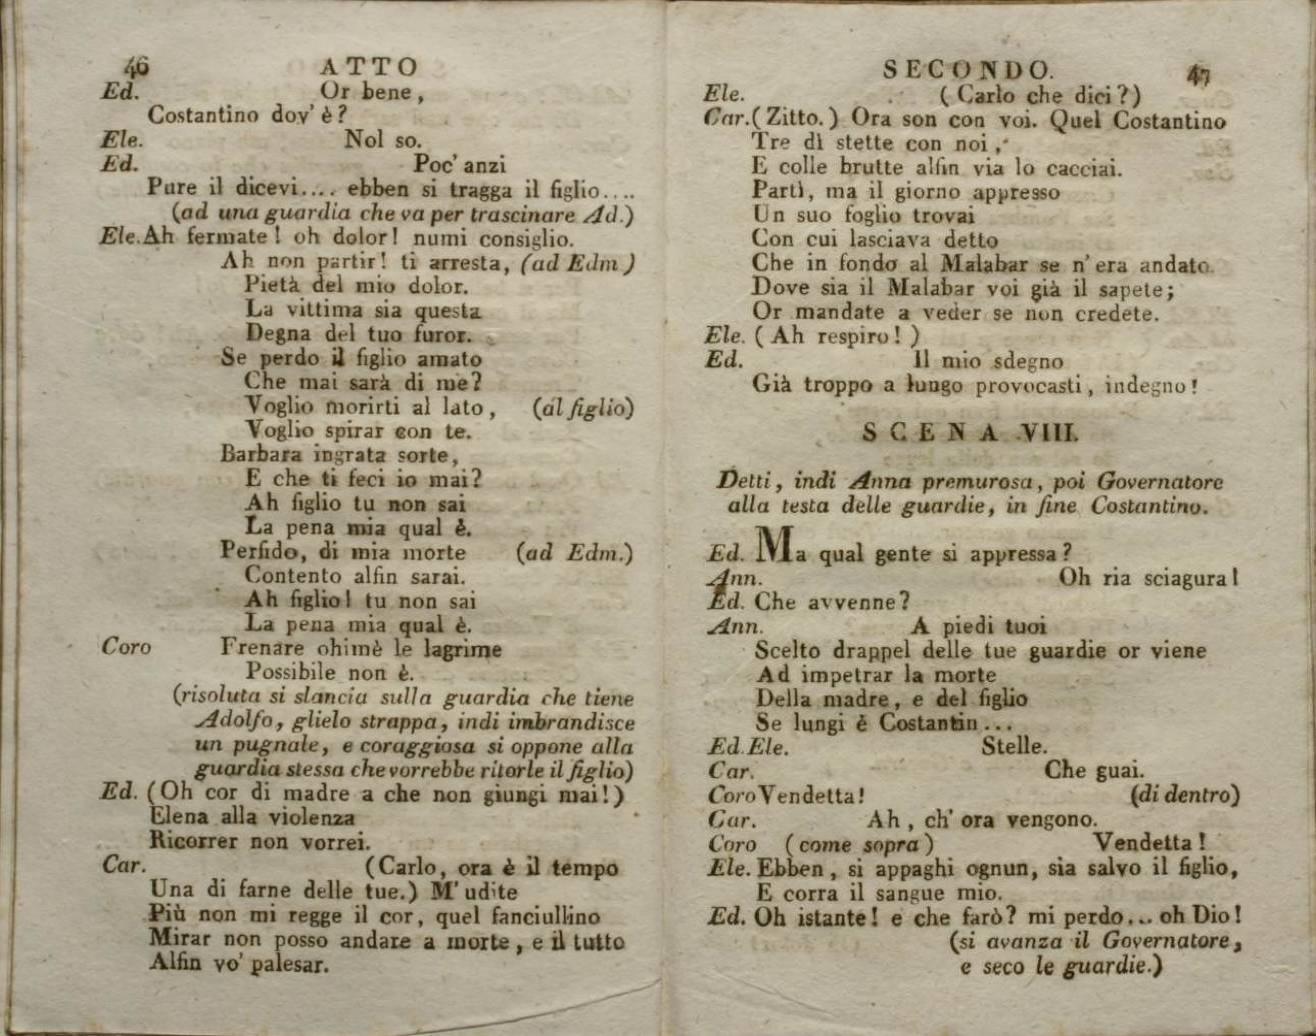 46 ATTO
Ed. Or bene,
Costantino dov' è?
Ele. Nol so.
Ed. Poc' anzi
Pure il dicevi.... ebben si tragga il figlio....
(ad una guardia che va per trascinare Ad.)
Ele. Ah fermate! oh dolor! numi consiglio.
Ah non partir! ti arresta, (ad Edm)
Pietà del mio dolor.
La vittima sia questa
Degna del tuo furor.
Se perdo il figlio amato
Che mai sarà di me?
Voglio morirti al lato, (al figlio)
Voglio spirar con te.
Barbara ingrata sorte,
E che ti feci io mai?
Ah figlio tu non sai
La pena mia qual è.
Perfido, di mia morte (ad Edm.)
Contento alfin sarai.
Ah figlio! tu non sai
La pena mia qual è.
Coro Frenare ohimè le lagrime
Possibile non è.
(risoluta si slancia sulla guardia che tiene
Adolfo, glielo strappa, indi imbrandisce
un pugnale, e coraggiosa si oppone alla
guardia stessa che vorrebbe ritorle il figlio)
Ed. (Oh cor di madre a che non giungi mai!)
Elena alla violenza
Ricorrer non vorrei.
Car. (Carlo, ora è il tempo
Una di farne delle tue.) M' udite
Più non mi regge il cor, quel fanciullino
Mirar non posso andare a morte, e il tutto
Alfin vo' palesar.
SECONDO. 47
Ele. (Carlo che dici?)
Car. (Zitto.) Ora son con voi. Quel Costantino
Tre dì stette con noi,
E colle brutte alfin via lo cacciai.
Partì, ma il giorno appresso
Un suo foglio trovai
Con cui lasciava detto
Che in fondo al Malabar se n' era andato.
Dove sia il Malabar voi già il sapete;
Or mandate a veder se non credete.
Ele. (Ah respiro!)
Ed. Il mio sdegno
Già troppo a lungo provocasti, indegno!
SCENA VIII.
Detti, indi Anna premurosa, poi Governatore
alla testa delle guardie, in fine Costantino.
Ed. Ma qual gente si appressa?
Ann. Oh ria sciagura!
Ed. Che avvenne?
Ann. A piedi tuoi
Scelto drappel delle tue guardie or viene
Ad impetrar la morte
Della madre, e del figlio
Se lungi è Costantin...
Ed. Ele. Stelle.
Car. Che guai.
Coro Vendetta! (di dentro)
Car. Ah, ch' ora vengono.
Coro (come sopra) Vendetta!
Ele. Ebben, si appaghi ognun, sia salvo il figlio,
E corra il sangue mio.
Ed. Oh istante! e che farò? mi perdo... oh Dio!
(si avanza il Governatore,
e seco le guardie.)